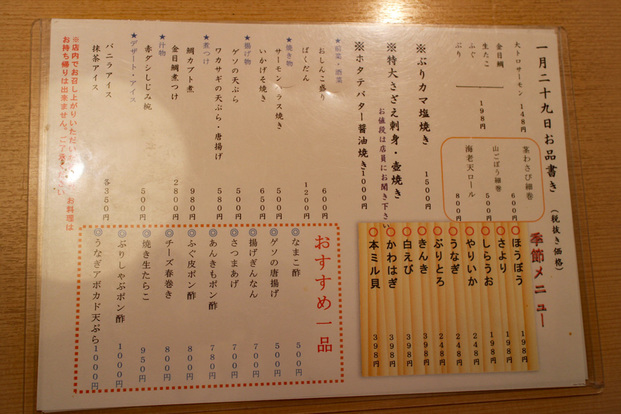 一月二十九日お品書き(税抜き価格)
大トロサーモン 148円
金目鯛
生たこ 198円
ふぐ
ぶり
茎わさび細巻 600円
山ごぼう細巻 500円
海老天ロール 800円
季節メニュー
ほうぼう 198円
さより 198円
しらうお 198円
やりいか 248円
うなぎ 248円
ぶりとろ 248円
きんき 398円
白えび 398円
かわはぎ 398円
本ミル貝 398円
※ぶりカマ塩焼き 1500円
※特大さざえ刺身・壺焼き
お値段は店員にお聞き下さい
※ホタテバター醤油焼き 1000円
★
おしんこ盛り 600円
ばくだん 1200円
★焼き物
サーモンハラス焼き 500円
いかげそ焼き 600円
★揚げ物
ゲソの天ぷら 500円
ワカサギの天ぷら・唐揚げ 580円
★煮つけ
鯛カブト煮 980円
金目鯛煮つけ 2800円
★汁物
赤ダシしじみ椀 500円
★デザート・アイス
バニラアイス
抹茶アイス 各350円
※店内でお召し上がりいただいたお料理は
お持ち帰りは出来ません。ご了承ください
おすすめ一品
なまこ酢 500円
ゲソの唐揚げ 500円
揚げぎんなん 700円
さつまあげ 700円
あんきもポン酢 780円
ふぐ皮ポン酢 800円
チーズ春巻き 800円
焼き生たらこ 950円
ぶりしゃぶポン酢 1000円
うなぎアボカド天ぷら 1000円